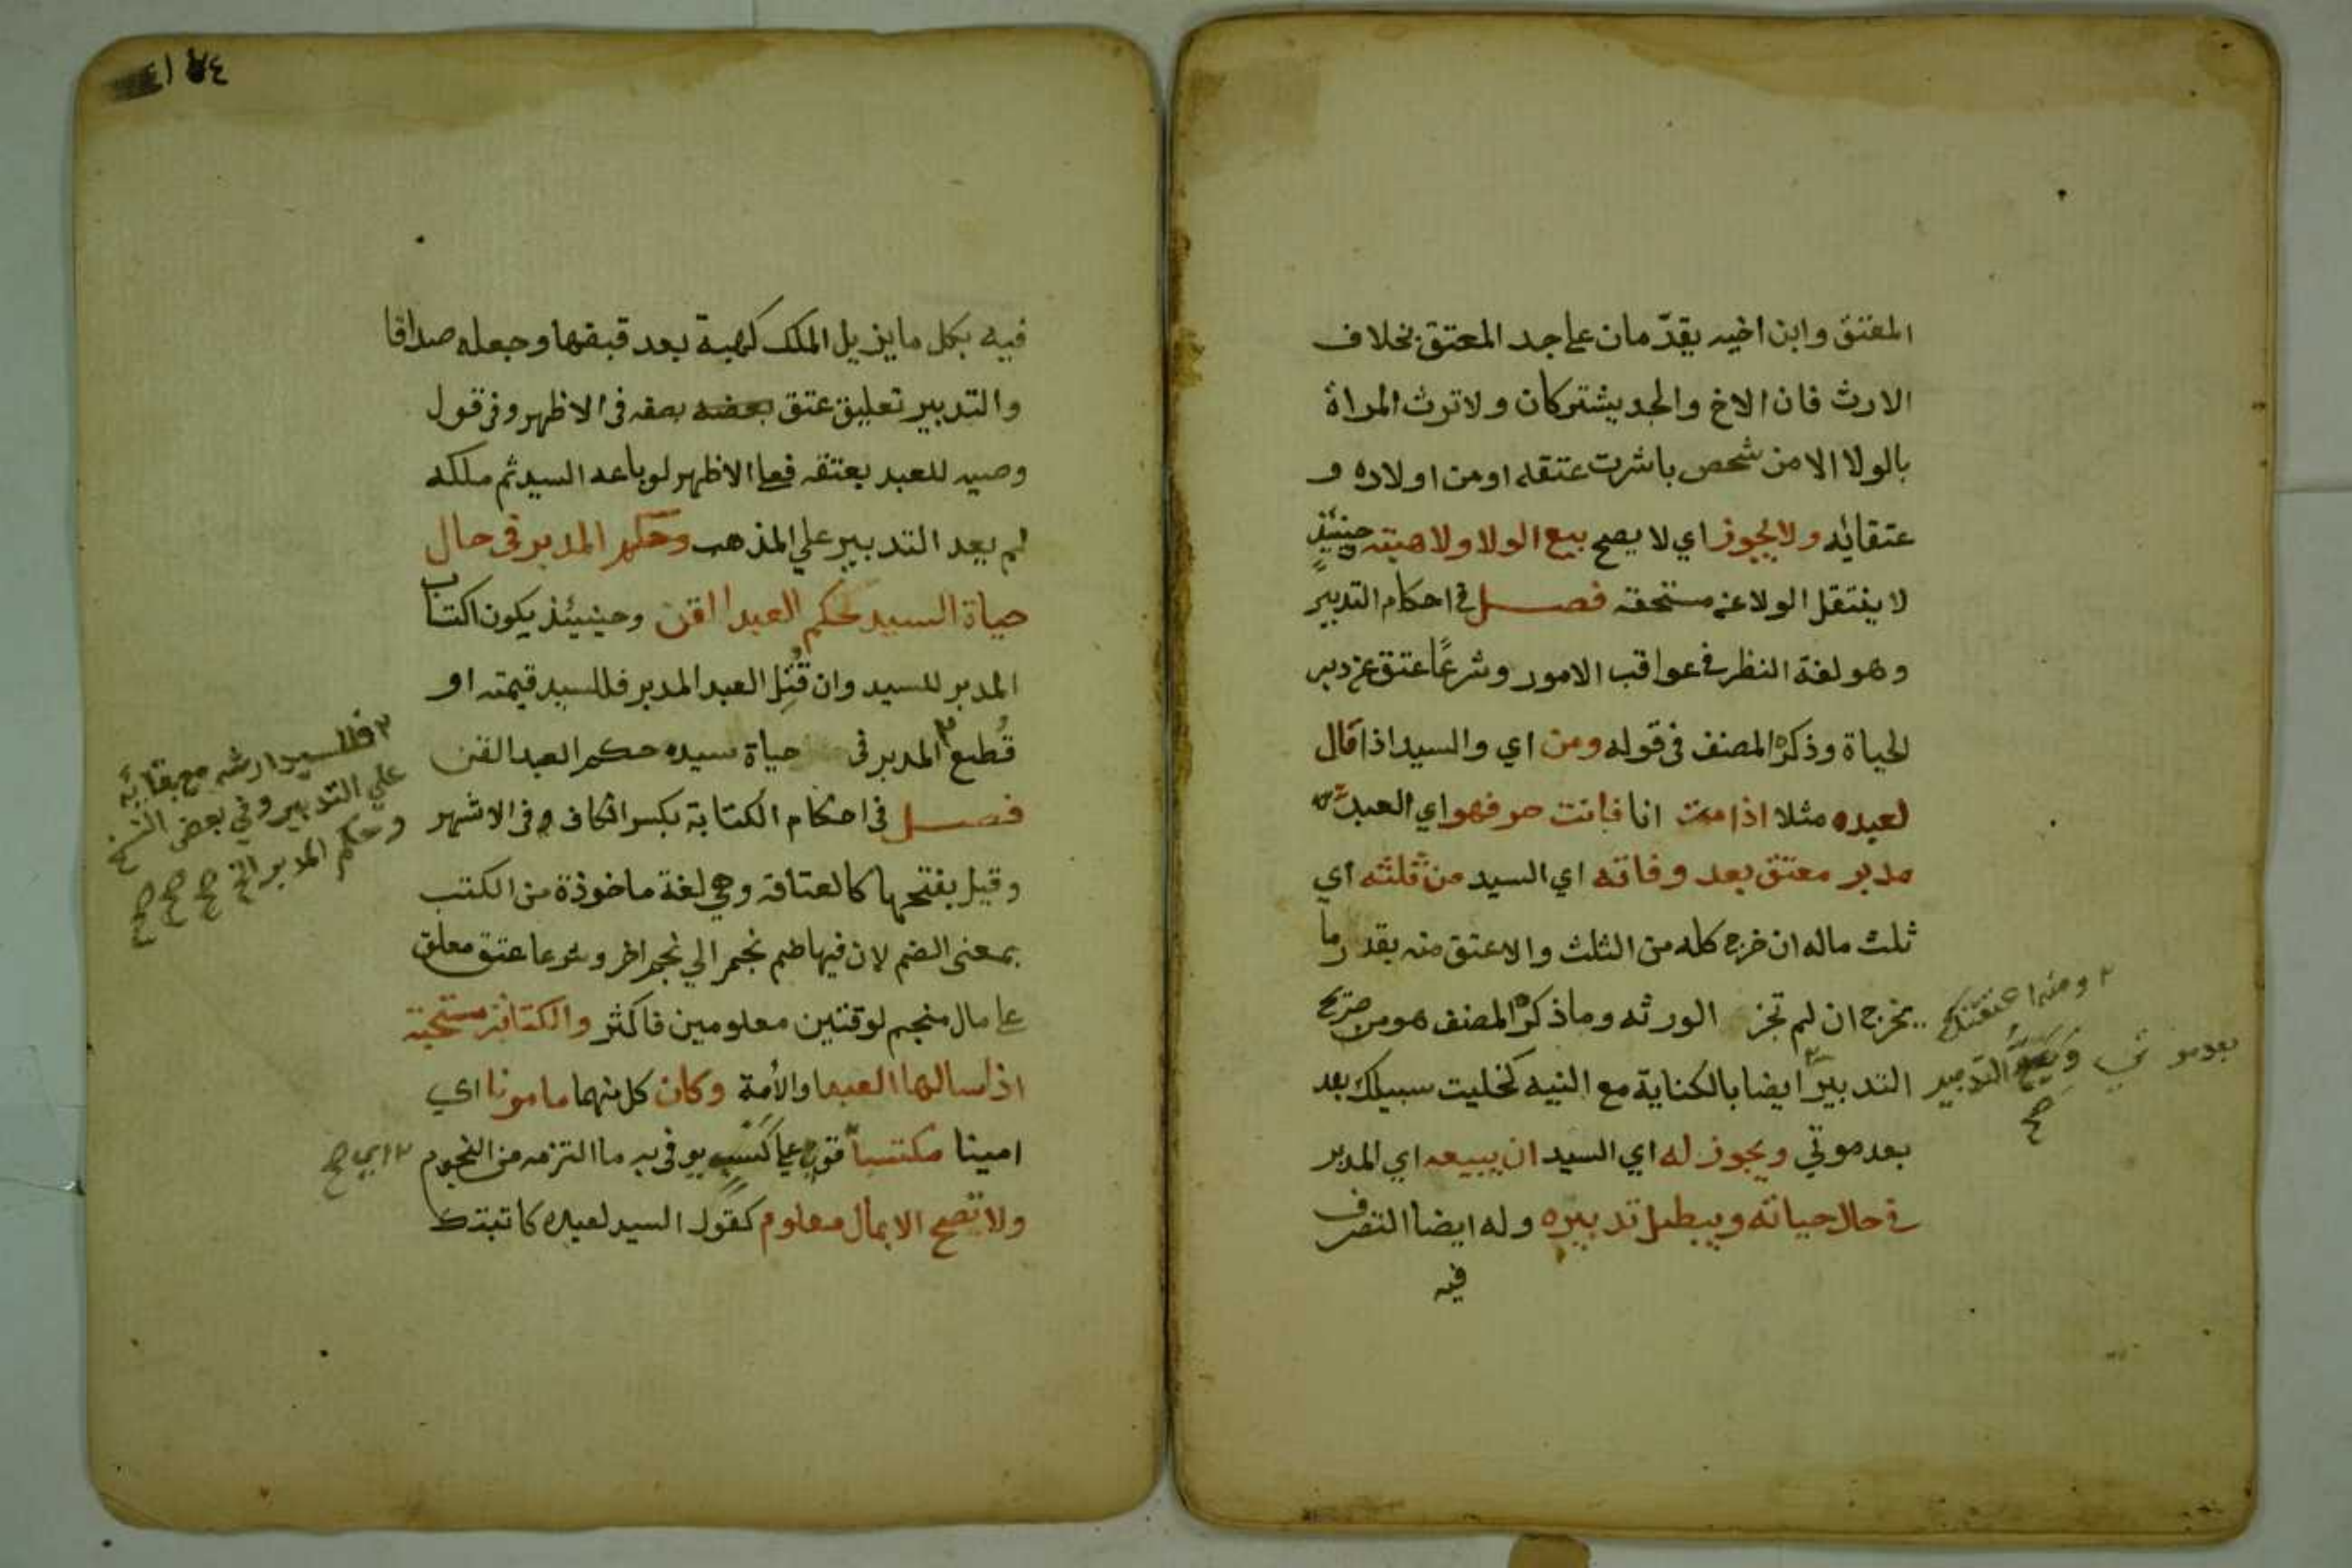 المعتق وابن اخيه يقدّمان على جد المعتق بخلاف
الارث فان الاخ والجد يشتركان ولا ترث المراة
بالولا الا من شخص باشرت عتقه او من اولاده و
عتقايه ولا يجوز اي لا يصح بيع الولا ولا هبته حينيذٍ
لا ينتقل الولا عن مستحقه فصل في احكام التدبير
وهو لغة النظر في عواقب الامور وشرعًا عتق عن دبر
الحياة وذكره المصنف في قوله ومن اي والسيد اذا قال
لعبده مثلا اذا مت انا فانت حر فهو اي العبد
مدبر معتق بعد وفاته اي السيد من ثلثه اي
ثلث ماله ان خرج كله من الثلث والا عتق منه بقدر ما
يخرج ان لم تجز الورثه وما ذكره المصنف هو من صريح
التدبير ايضا بالكناية مع النيه كخليت سبيلك بعد
بعد موتي ويجوز له اي السيد ان يبيعه اي المدبر
في حال حياته ويبطل تدبيره وله ايضا التصرف
فيه
٢ ومنه اعتقتك
بعد موتي ويصح التدبير
صح
فيه بكل ما يزيل الملك كهبة بعد قبضها وجعله صداقا
والتدبير تعليق عتق بصفه في الاظهر وفي قول
وصيه للعبد بعتقه فعلى الاظهر لو باعه السيد ثم ملكه
لم يعد التدبير علي المذهب وحكم المدبر في حال
حياة السيد كحكم العبد القن وحينيئذ يكون اكتساب
المدبر للسيد وان قُتِل العبد المدبر فللسيد قيمته او
قُطع٢ المدبر في حياة سيده حكم العبد القن
فصل في احكام الكتابة بكسر الكاف وفي الاشهر
وقيل بفتحها كالعتاقه وهي لغة ماخوذة من الكتب
بمعنى الضم لان فيها ضم نجم الي نجم اخر وشرعا عتق معلق
على مال منجم لوقتين معلومين فاكثر والكتابة مستحبة
اذا سالها العبد او الأمة وكان كل منهما مامونا اي
امينا مكتسباً قوي على كسب يوفي به ما التزمه من النجوم
ولا تصح الا بمال معلوم كقول السيد لعبده كاتبتك
٢ فللسيد ارشه مع بقايه
علي التدبير وفي بعض النسخ
وحكم المدبر الخ صح صح صح
٢ اي صح